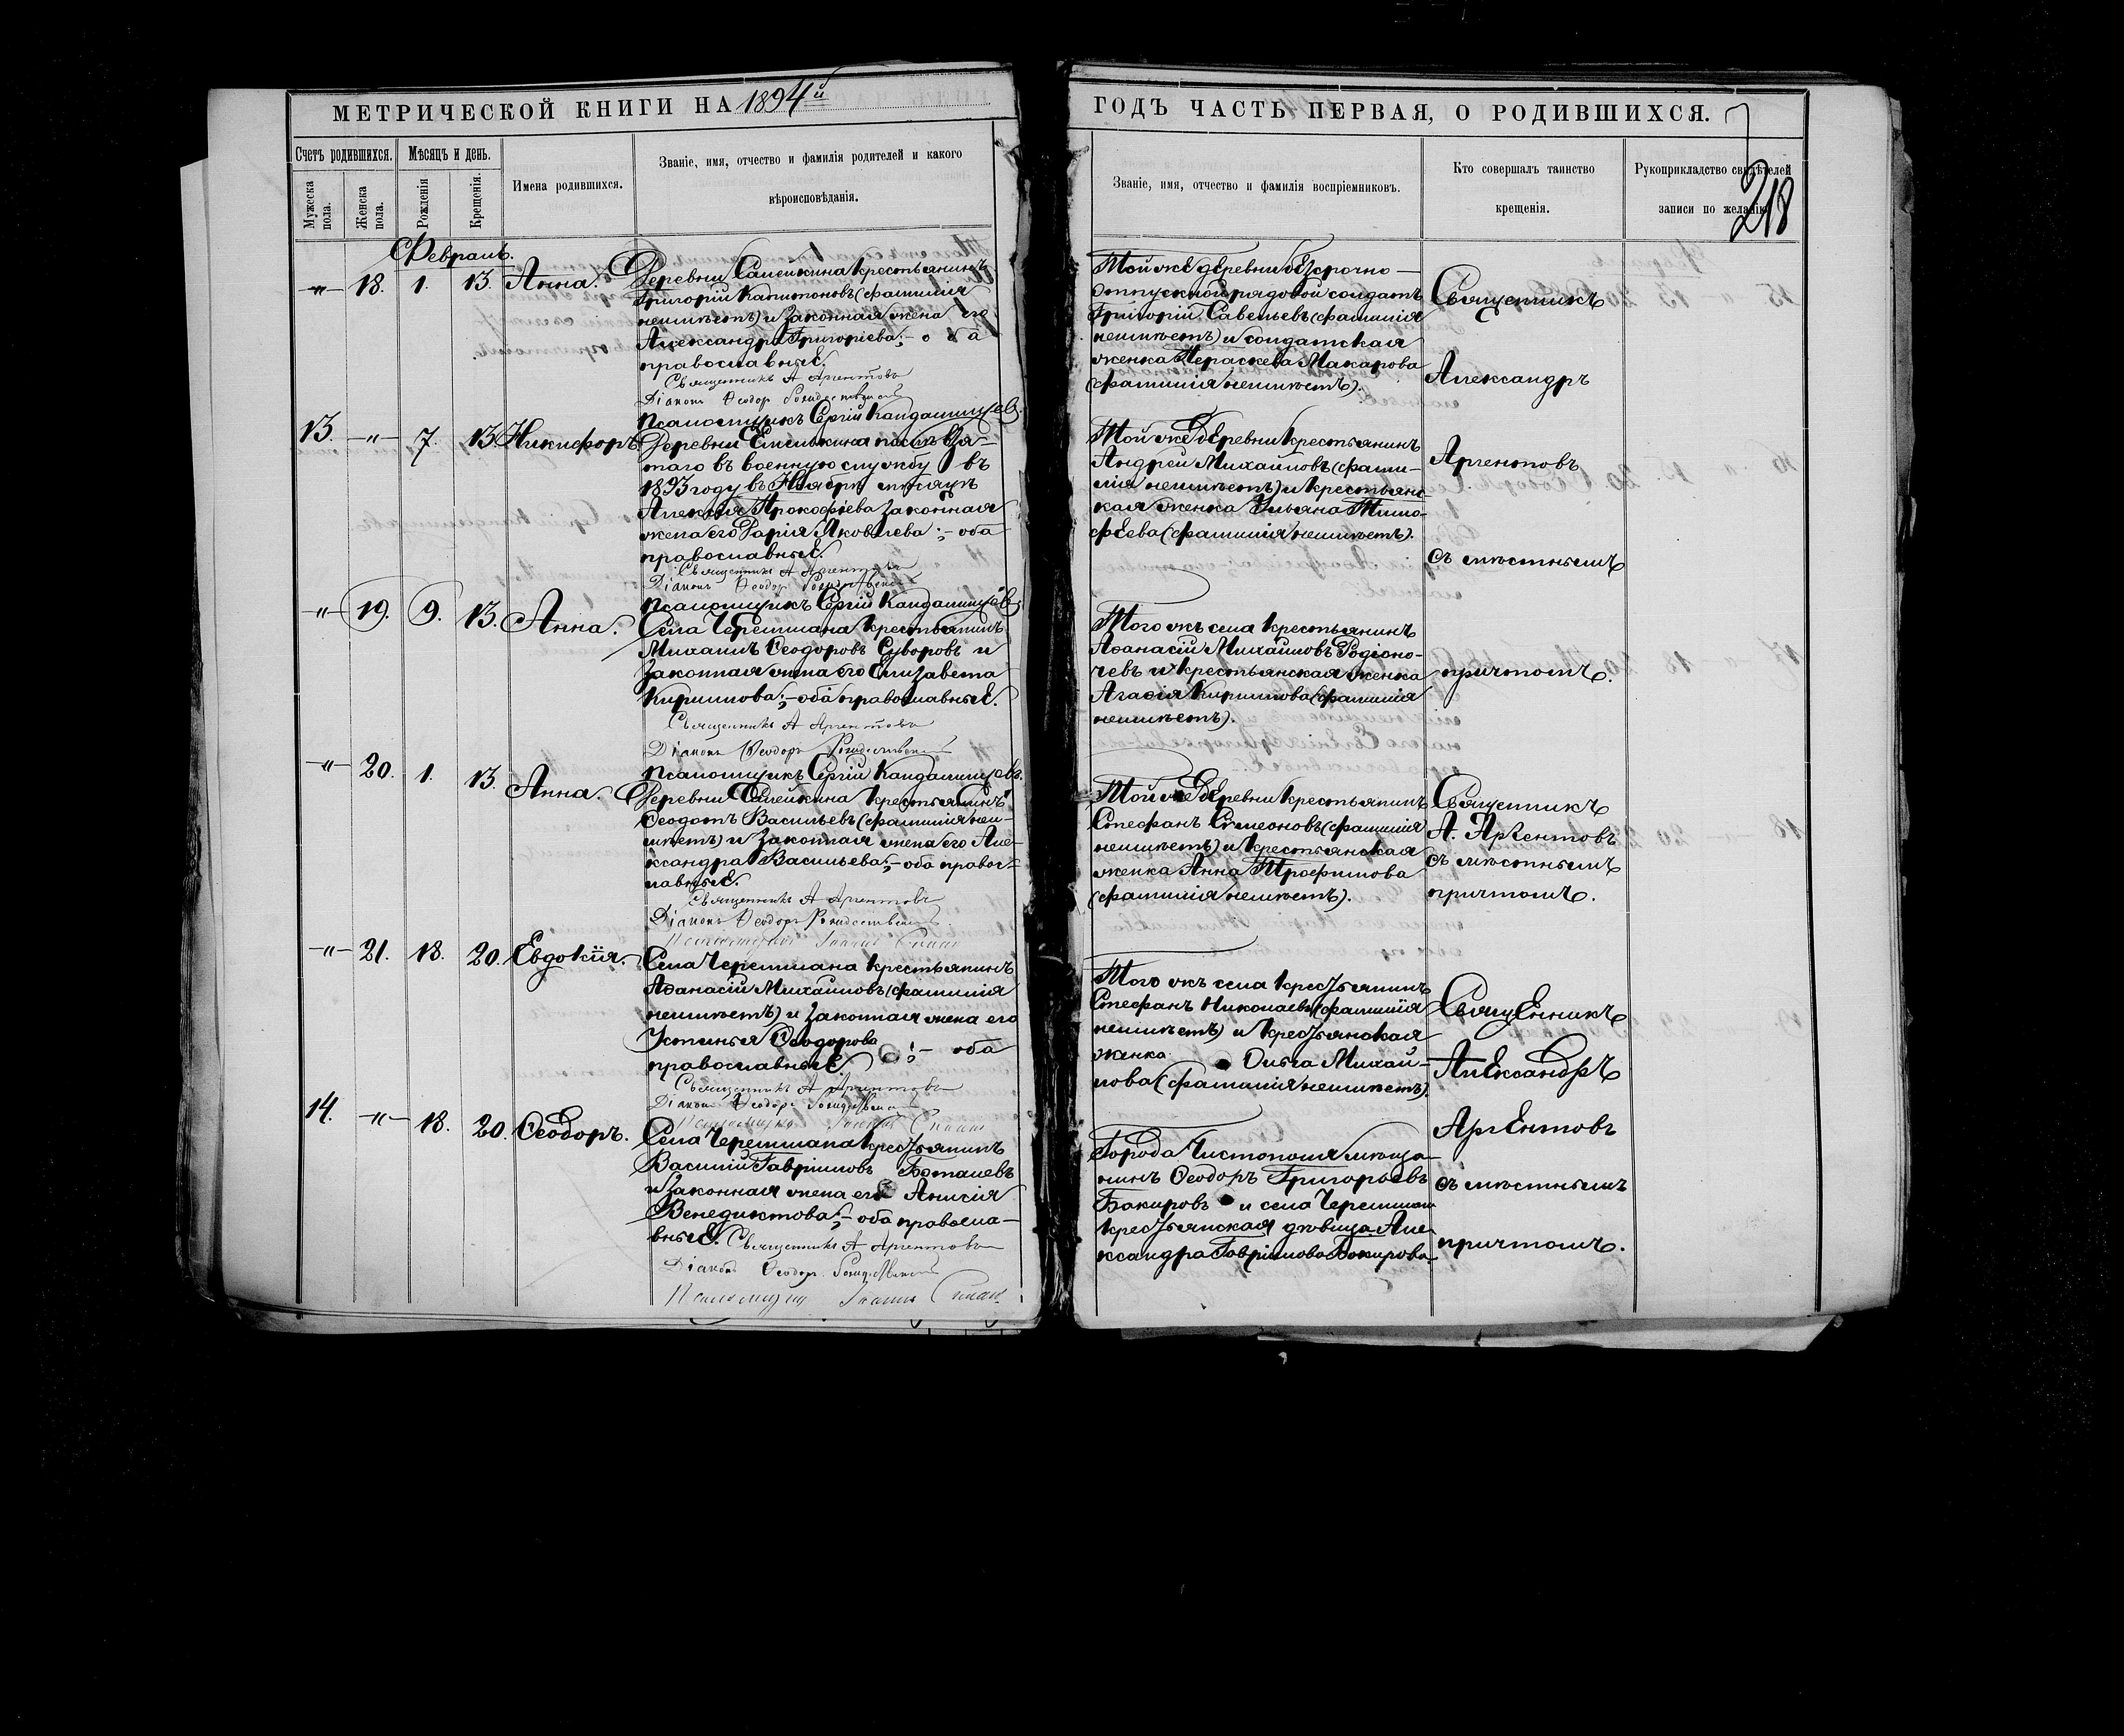 МЕТРИЧЕСКОЙ КНИГИ НА 1894й
ГОДЪ ЧАСТЬ ПЕРВАЯ, О РОДИВШИХСЯ.
218
Счетъ родившихся.
Мужеска пола.
Женска пола.
Мѣсяцъ и день.
Рожденія
Крещенія.
Имена родившихся.
Званіе, имя, отчество и фамилія родителей и какого
вѣроисповѣданія.
Званіе, имя, отчество и фамилія воспріемниковъ.
Кто совершалъ таинство
крещенія.
Рукоприкладство свидѣтелей
записи по желанію
Февраль.
-"- 18. 1. 13. Анна.
Деревни Самейкина крестьянинъ
Григорій Капитоновъ (фамиліи
неимѣетъ) и законная жена его
Александра Григоріева; - оба
православные.
Священникъ А Аргентовъ
Діаконъ Ѳеодоръ Рождественскій
Псаломщикъ Сергій Кандалинцевъ.
Той же деревни безсрочно-
отпускной рядовой солдатъ
Григорій Савельевъ (фамиліи
неимѣетъ) и солдатская
женка Параскева Макарова
(фамиліи неимѣетъ).
Священникъ
Александръ
Аргентовъ
съ мѣстнымъ
причтомъ.
13. -"- 7. 13. Никифоръ.
Деревни взя-
таго въ военную службу въ
1893 году въ Ноябрѣ мѣсяцѣ
Алексія Прокофіева законная
жена его Дарія Яковлева; - оба
православные.
Священникъ А Аргентовъ
Діаконъ Ѳеодоръ Рождественскій
Псаломщикъ Сергій Кандалинцевъ.
Той же деревни крестьянинъ
Андрей Михайловъ (фами-
лія неимѣетъ) и крестьянс-
кая женка Ульяна Тимо-
фѣева (фамиліи неимѣетъ).
-"- 19. 9. 13. Анна.
Села Черемшана крестьянинъ
Михаилъ Ѳеодоровъ Суворовъ и
законная жена его Елизавета
Кирилова; - оба православные.
Священникъ А Аргентовъ
Діаконъ Ѳеодоръ Рождественскій
Псаломщикъ Сергій Кандалинцевъ.
Того жъ села крестьянинъ
Аѳанасій Михайловъ Родіоно-
чевъ и крестьянская женка
Агаѳія Кирилова (фамиліи
неимѣетъ).
-"- 20. 1. 13. Анна.
Деревни Самейкина крестьянинъ
Ѳеодотъ Васильевъ (фамиліи неи-
мѣетъ) и законная жена его Але-
ксандра Васильева; - оба правос-
лавные.
Священникъ А Аргентовъ
Діаконъ Ѳеодоръ Рождественскій
Той же деревни крестьянинъ
Стефанъ Симеоновъ (фамиліи
неимѣетъ) и крестьянская
женка Анна Трофимова
(фамиліи неимѣетъ).
Священникъ
А. Аргентовъ
съ мѣстнымъ
причтомъ.
-"- 21. 18. 20. Евдокія.
Села Черемшана крестьянинъ
Аѳанасій Михайловъ (фамиліи
неимѣетъ) и законная жена его
Устинья Ѳеодорова ; - оба
православные
Священникъ А Аргентовъ
Діаконъ Ѳеодоръ Рождественскій
Того жъ села крестьянинъ
Стефанъ Николаевъ (фамиліи
неимѣетъ) и крестьянская
женка Ольга Михай-
лова (фамиліи неимѣетъ).
Священникъ
Александръ
Аргентовъ
съ мѣстнымъ
причтомъ.
14. -"- 18. 20. Ѳеодоръ.
Села Черемшана крестьянинъ
Василій Гавріиловъ
и законная жена его Анисія
Венедиктова; - оба правосла-
вные. Священникъ А Аргентовъ
Діаконъ Ѳеодоръ Рождественскій
Города Чистополя мѣща-
нинъ Ѳеодоръ Григорьевъ
Бакировъ и села Черемшана
крестьянская дѣвица Але-
ксандра Гавріилова Бакирова